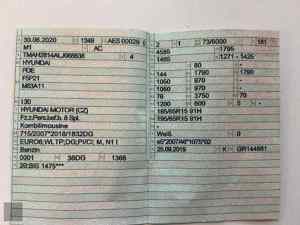 30.06.2020 1349 AES 00029 2
M1 AC
4
HYUNDAI
PDE
F5P21
M63A11
130
HYUNDAI MOTOR (CZ)
Fz.z.Pers.bef.b. 8 Spl.
Kombilimousine
715/2007*2018/1832DG
EURO6;WLTP;DG;PI/CI; M, N1 I
Benzin
0001 36DG 1368
2 1 73/6000 181
4585 1795
1485 1271 - 1425
80 -
144 1790 1790
1050 970 -
1060 970 -
70 3750 70
1200 600 5 -
195/65R15 91H
195/65R15 91H
-
Weiß 0
e5*2007/46*1075*02
25.09.2019 K GR144681